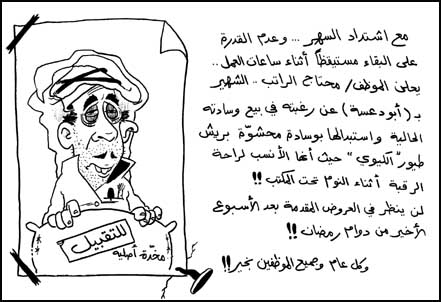 مع اشتداد السهر ... وعدم القدرة
على البقاء مستيقظاً أثناء ساعات العمل ..
يعلن الموظف/ محتاج الراتب .. الشهير
بـ (أبو دعسة) عن رغبته في بيع وسادته
الحالية واستبدالها بوسادة محشوّة بريش
طيور "الكيوي" حيث أنها الأنسب لراحة
الرقبة أثناء النوم تحت المكتب !!
لن ينظر في العروض المقدمة بعد الأسبوع
الأخير من دوام رمضان !!
وكل عام وجميع الموظفين بخير !!
للتقبيل
مخدّة أصلية